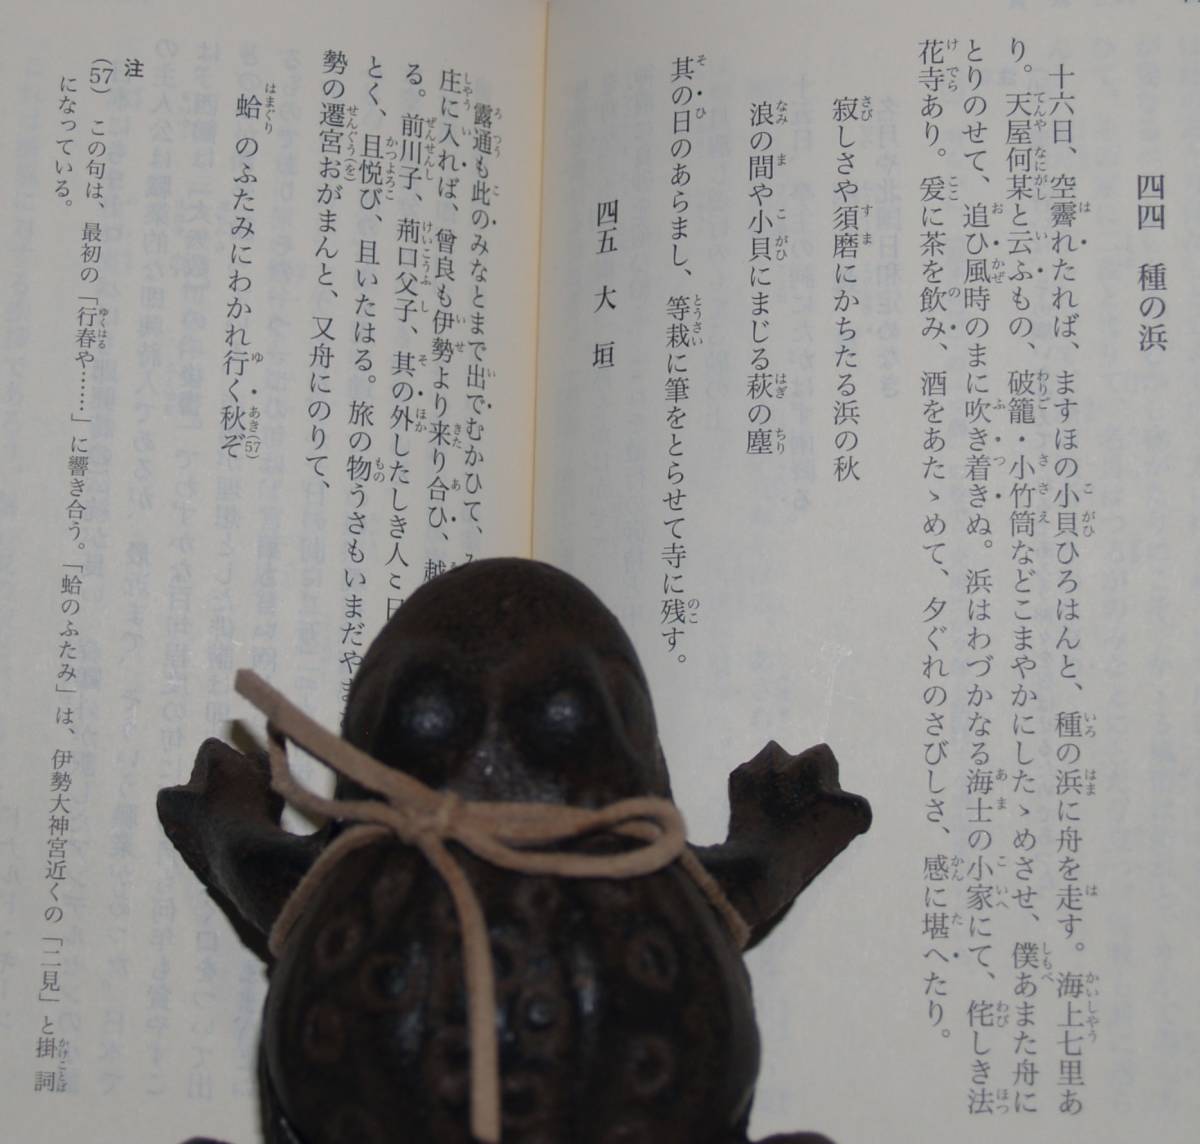 四四 種の浜
十六日、空霽れたれば、ますほの小貝ひろはんと、種の浜に舟を走す。海上七里あ
り。天屋何某と云ふもの、破籠・小竹筒などこまやかにしたゝめさせ、僕あまた舟に
とりのせて、追ひ風時のまに吹き着きぬ。浜はわづかなる海士の小家にて、侘しき法
花寺あり。爰に茶を飲み、酒をあたゝめて、夕ぐれのさびしさ、感に堪へたり。
寂しさや須磨にかちたる浜の秋
浪の間や小貝にまじる萩の塵
其の日のあらまし、等栽に筆をとらせて寺に残す。
四五 大垣
露通も此のみなとまで出でむかひて、
庄に入れば、曾良も伊勢より来り合ひ、越
る。前川子、荊口父子、其の外したしき人〻日
とく、且悦び、且いたはる。旅の物うさもいまだやま
勢の遷宮おがまんと、又舟にのりて、
蛤のふたみにわかれ行く秋ぞ(57)
注
(57) この句は、最初の「行春や……」に響き合う。「蛤のふたみ」は、伊勢大神宮近くの「二見」と掛詞
になっている。